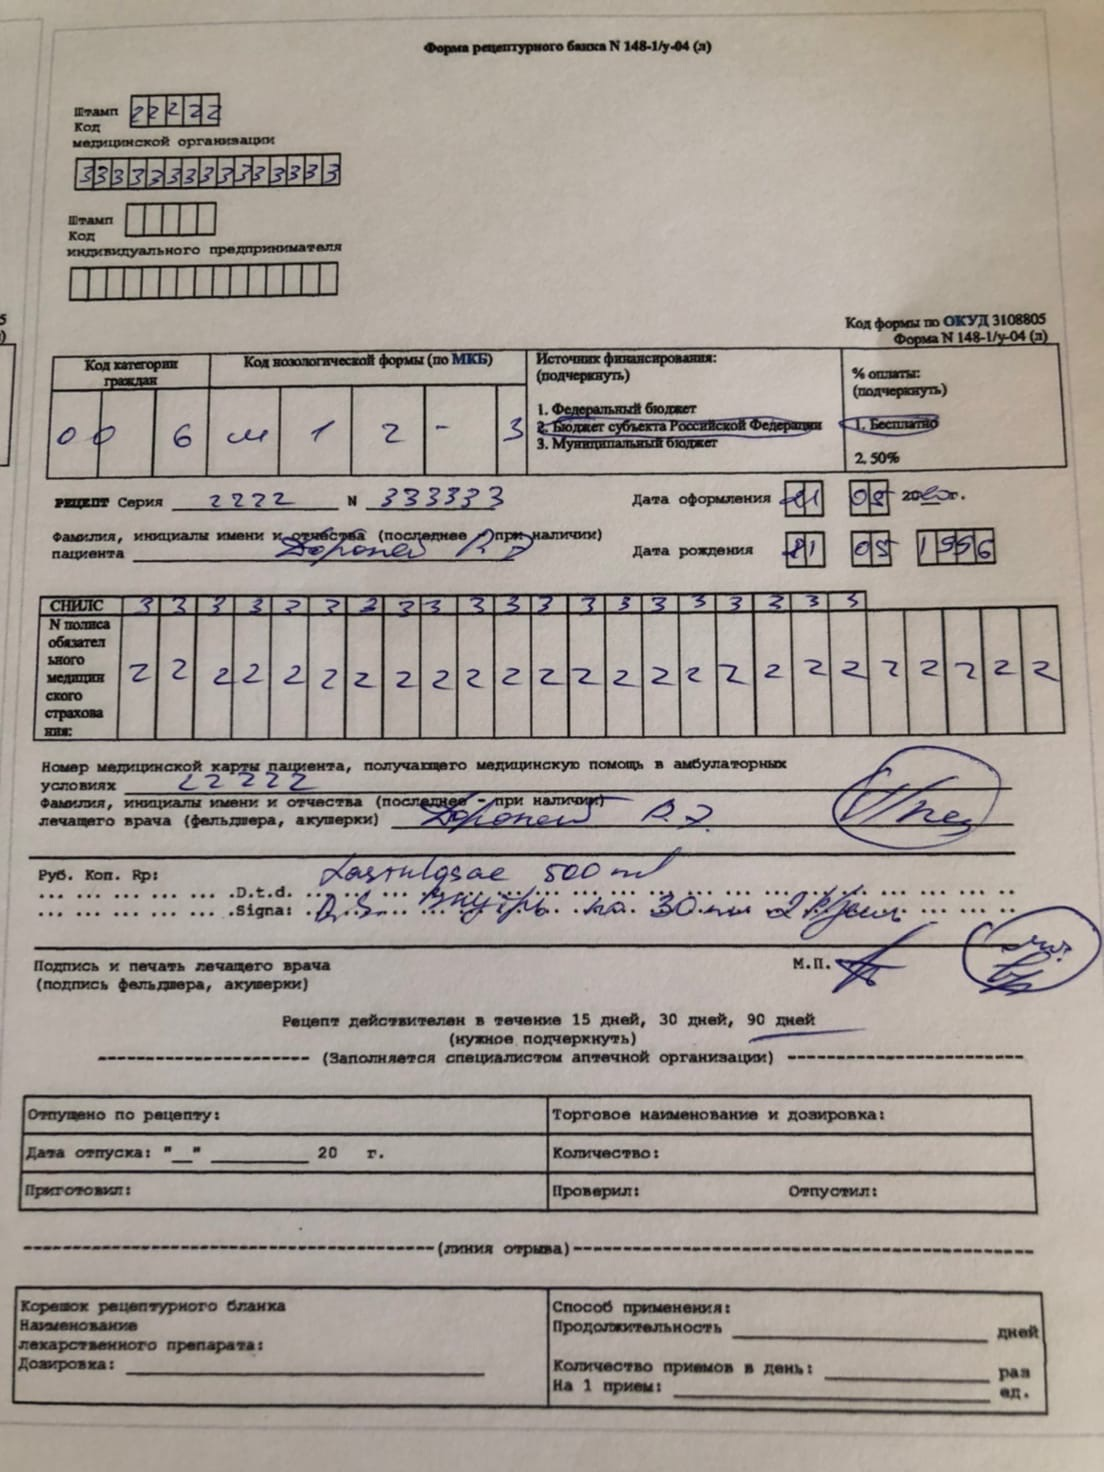 Форма рецептурного банка N 148-1/у-04 (л)
Штамп 22222
Код
медицинской организации
333333333333333
Штамп
Код
индивидуального предпринимателя
Код формы по ОКУД 3108805
Форма N 148-1/у-04 (л)
Код категории граждан
Код нозологической формы (по МКБ)
Источник финансирования:
(подчеркнуть)
1. Федеральный бюджет
2. Бюджет субъекта Российской Федерации
3. Муниципальный бюджет
% оплаты:
(подчеркнуть)
1. Бесплатно
2. 50%
00 6 м 1 2 - 3
РЕЦЕПТ Серия 2222 N 333333 Дата оформления 05 20 г.
Фамилия, инициалы имени и отчества (последнее - при наличии)
пациента
Дата рождения 05 1996
СНИЛС 3 3 3 3 3 3 3 3 3 3 3 3 3 3 3 3 3 3 3 3
N полиса
обязател
ьного
медицин
ского
страхова
ния:
2 2 2 2 2 2 2 2 2 2 2 2 2 2 2 2 2 2 2 2 2 2 2 2 2
Номер медицинской карты пациента, получающего медицинскую помощь в амбулаторных
условиях 22222
Фамилия, инициалы имени и отчества (последнее - при наличии)
лечащего врача (фельдшера, акушерки)
Руб. Коп. Rp: 500 ml
... ... ... ... ... ... .D.t.d. ... ... ... ... ... ... ... ... ... ... ... ...
... ... ... ... ... ... .Signa: D.S. Внутрь по 30 мл 2
Подпись и печать лечащего врача
(подпись фельдшера, акушерки)
М.П.
Рецепт действителен в течение 15 дней, 30 дней, 90 дней
(нужное подчеркнуть)
-------------------- (Заполняется специалистом аптечной организации) ----------------------
Отпущено по рецепту:
Торговое наименование и дозировка:
Дата отпуска: "__" _________ 20 г.
Количество:
Приготовил:
Проверил: Отпустил:
---------------------------------------(линия отрыва)-------------------------------------------
Корешок рецептурного бланка
Наименование
лекарственного препарата:
Дозировка: ______________________________
Способ применения:
Продолжительность ______________________ дней
Количество приемов в день: ______________ раз
На 1 прием: ____________________________ ед.